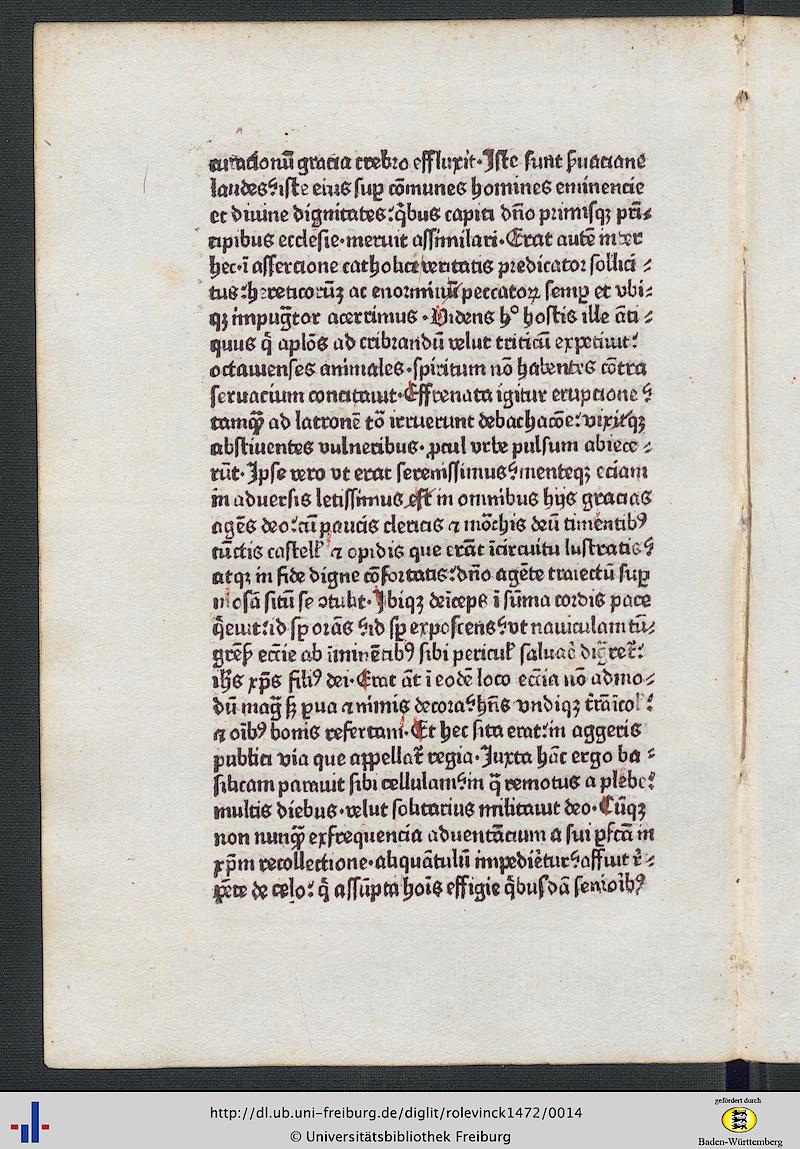 curacionū gracia crebro effluxit· Iste sunt ẜuaciane
laudes: iste eius suꝑ cōmunes homines eminencie
et diuine dignitates: q̄bus capiti dn̄o primisqꝫ prī⸗
cipibus ecclesie· meruit assimilari· Erat autē inter
hec· ī assercione catholice veritatis predicator sollici⸗
tus: hereticorūꝫ ac enormiuū peccatoꝝ semꝑ et vbi⸗
qꝫ impugᷓtor acerrimus· Videns hͦ hostis ille āti⸗
quus q̄ aplōs ad cribrandū velut triticū expetiuit:
octauienses animales· spiritum nō habentes cōtra
seruacium concitauit· Effrenata igitur erupcione:
tamqᷓꝫ ad latronē tō irruerunt debachacōe: vixitqꝫ
abstinentes vulneribus· ꝓcul vrbe pulsum abiece⸗
rūt· Ipse vero vt erat serenissimus: menteqꝫ eciam
in aduersis letissimus est in omnibus hijs gracias
agēs deo: cū paucis clericis ⁊ mōchis deū timentibꝰ
cūctis castelꝉ ⁊ opidis que erāt īcircuitu lustratis:
atqꝫ in fide digne cōfortatis: dn̄o agēte traiectū suꝑ
mosā sitū se ↄtulit· Ibiqꝫ deīceps ī sūma cordis pace
q̄euit: id sꝑ orās: id sꝑ exposcens: vt nauiculam tū⸗
grēẜ ecc̄ie ab īminētibꝰ sibi pericuꝉ saluaē diḡret̄:
ih̄s xp̄s filiꝰ dei· Erat āt ī eodē loco ecc̄ia nō admo⸗
dū magᷓ ẜꝫ ꝑua ⁊ nimis decora: hn̄s vndiqꝫ
⁊ oībꝰ bonis refertam· Et hec sita erat: in aggeris
publici via que appellat̄ regia· Iuxta hāc ergo ba⸗
silicam parauit sibi cellulam: in q̄ remotus a plebe:
multis diebus· velut solitarius militauit deo· Cūqꝫ
non nunqᷓꝫ exfrequencia aduentācium a sui ꝑfcā in
xp̄m recollectione· aliquātulū impediētur: affuit r̄⸗
pēte de celo: q̄ assūpta hoīs effigie q̄busdā senioībꝰ
http://dl.ub.uni-freiburg.de/diglit/rolevinck1472/0014
© Universitätsbibliothek Freiburg
gefördert durch
Baden-Württemberg